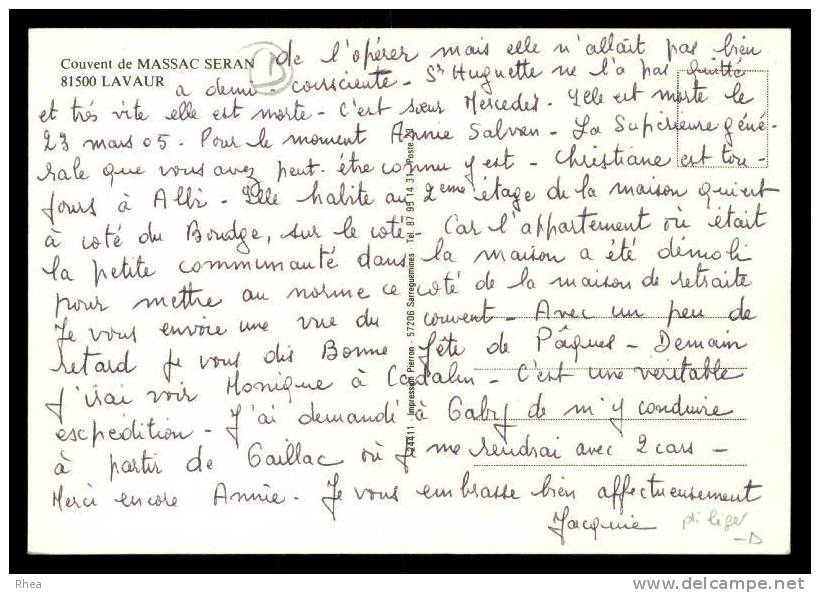 Couvent de MASSAC SERAN
81500 LAVAUR
de l'opérer mais elle n'allait pas bien
a demi-consciente - Sr Huguette ne l'a pas quittée
et très vite elle est morte - C'est sœur Mercedes. Elle est morte le
23 mars 05. Pour le moment Annie Salvan - La Supérieure géné-
rale que vous avez peut-être connu y est - Christiane est tou-
jours à Albi - Elle habite au 2ème étage de la maison qui est
à coté du Boudge, sur le coté - Car l'appartement où était
la petite communauté dans la maison a été démoli
pour mettre au norme ce coté de la maison de retraite
Je vous envoie une vue du couvent - Avec un peu de
retard je vous dis Bonne fête de Pâques - Demain
j'irai voir Monique à Cadalen - C'est une veritable
escpédition - J'ai demandé à Gaby de m'y conduire
à partir de Gaillac où je me rendrai avec 2 cars -
Merci encore Annie - Je vous embrasse bien affectueusement
Jacquie
24411 Impression Pierron - 57206 Sarreguemines - Tél. 87 95 14 31 - Poste 29
Rhea
www.delcampe.net